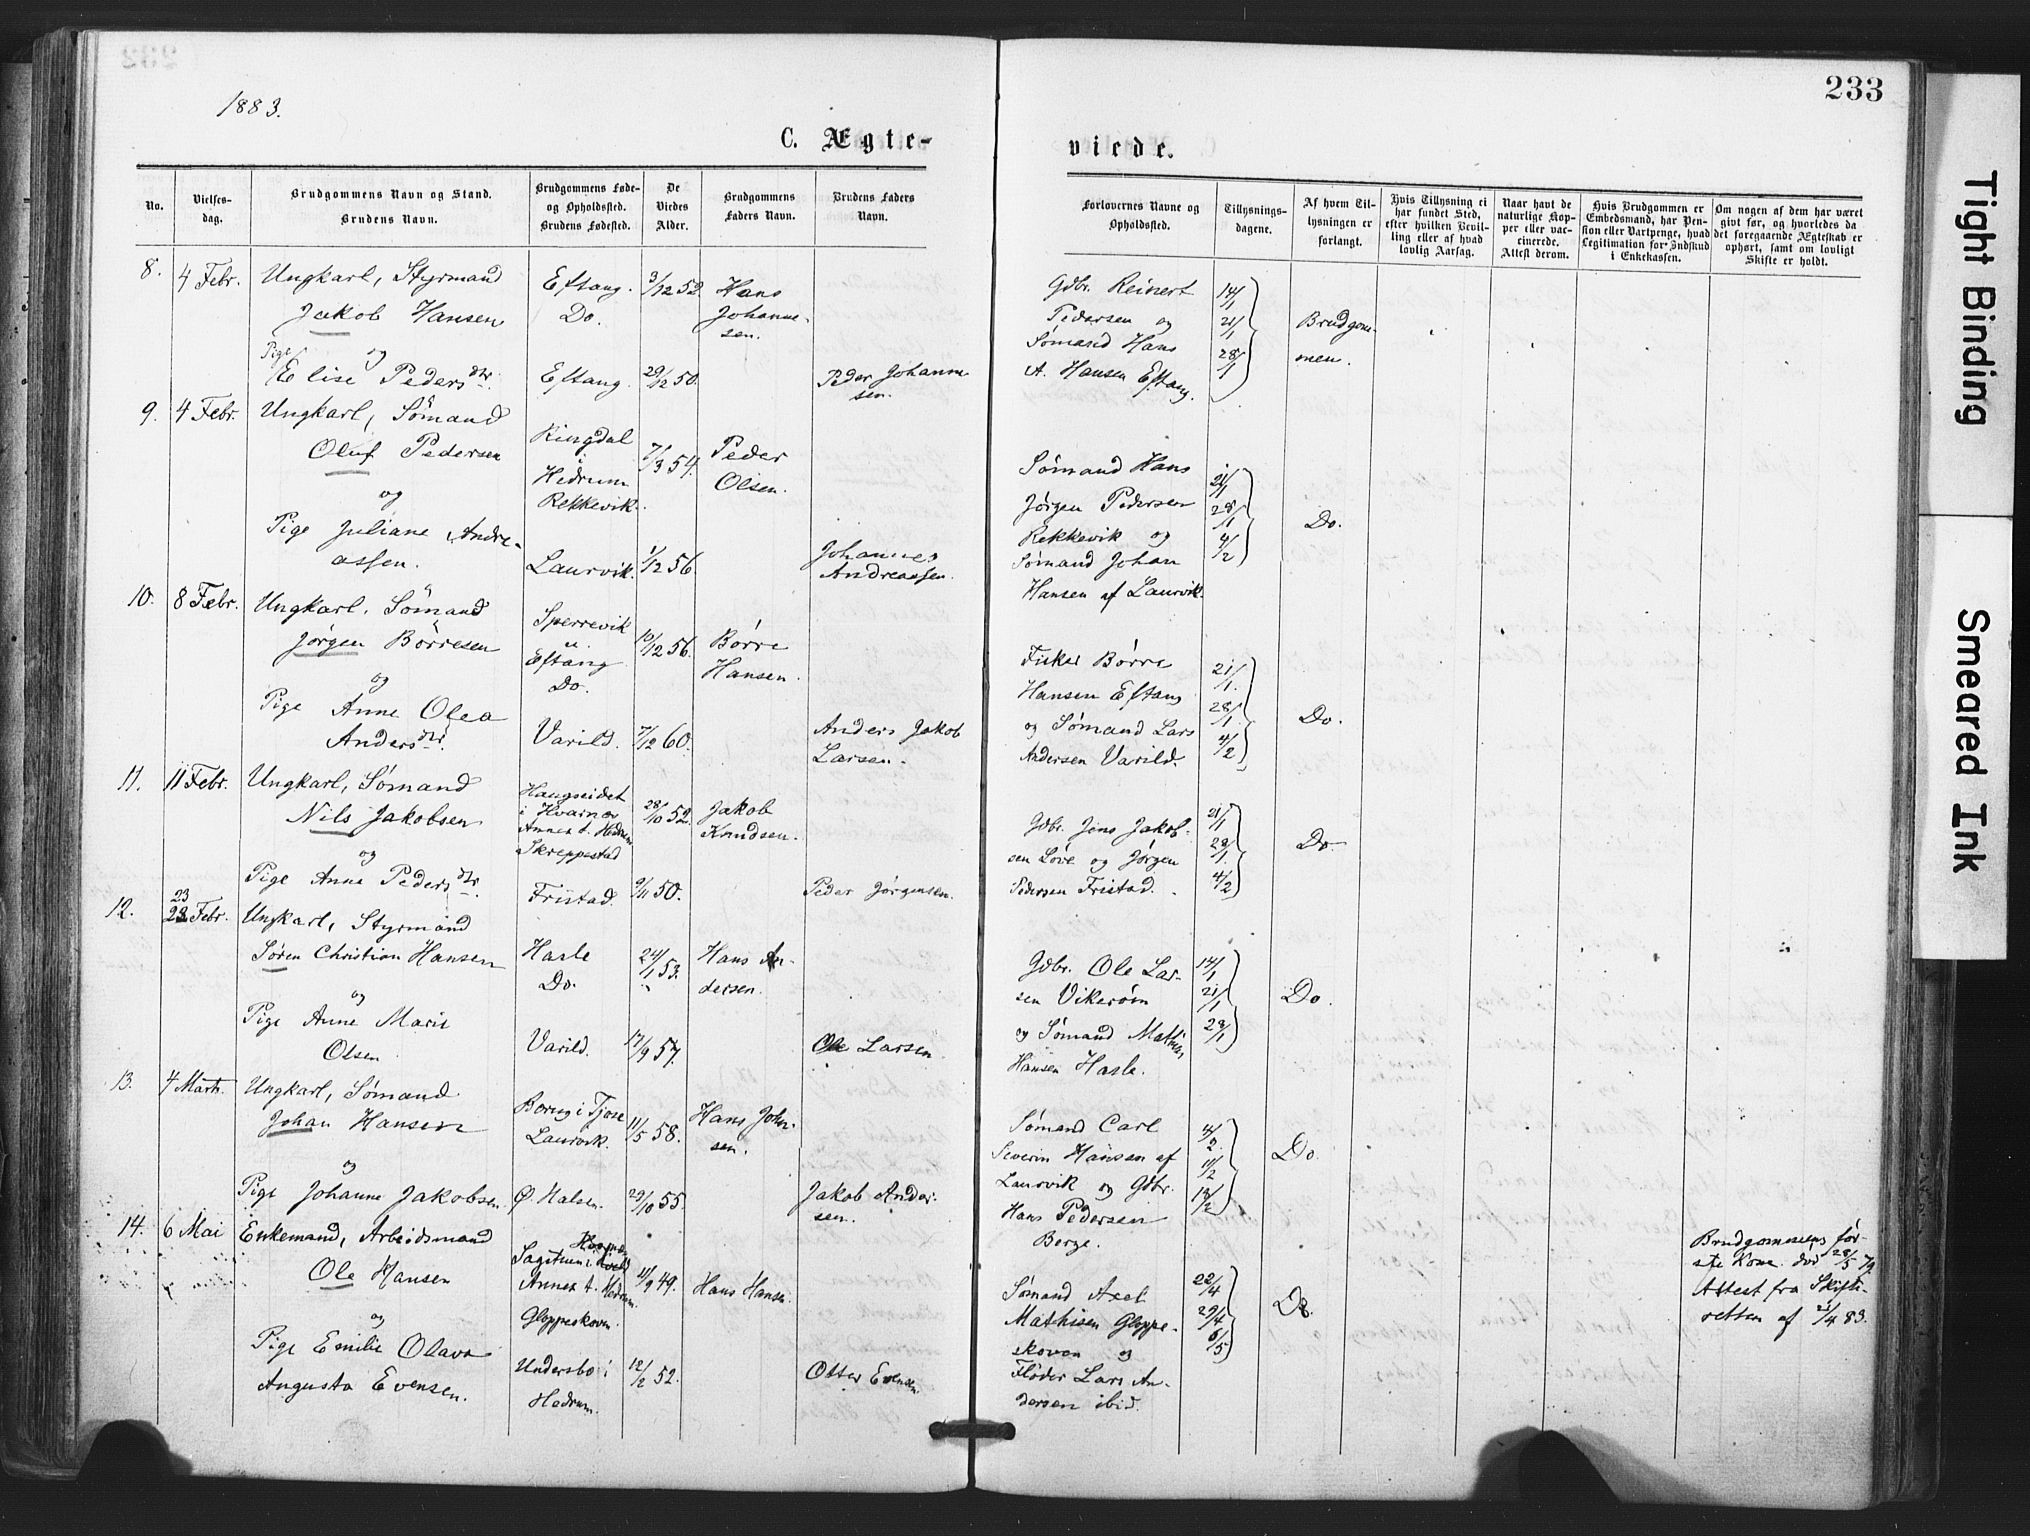 233
1883.
C. Ægte-
viede.
No.
Vielses-
dag.
Brudgommens Navn og Stand.
Brudens Navn.
Brudgommens Føde-
og Opholdsted.
Brudens Fødested.
De
Viedes
Alder.
Brudgommens
Faders Navn.
Brudens Faders
Navn.
Forlovernes Navne og
Opholdsted.
Tillysnings-
dagene.
Af hvem Til-
lysningen er
forlangt.
Hvis Tillysning ei
har fundet Sted,
efter hvilken Bevil-
ling eller af hvad
lovlig Aarsag.
Naar havt de
naturlige Kop-
per eller vac-
cinerede.
Attest derom.
Hvis Brudgommen er
Embedsmand, har Pen-
sion eller Vartpenge, hvad
Legitimation for Indskud
i Enkekassen.
Om nogen af dem har været
givt før, og hvorledes da
det foregaaende Ægteskab er
ophørt, samt om lovligt
Skifte er holdt.
8.
4 Febr.
Ungkarl, Styrmand
Jakob Hansen
og
Pige
Elise Pedersdtr.
Eftang.
Do.
Eftang.
3/12 52
29/12 50.
Hans
Johanne-
sen.
Peder Johanne-
sen.
Gdbr. Reinert
Pedersen og
Sømand Hans
A. Hansen Eftang.
14/1
21/1
28/1
Brudgom-
men.
9.
4 Febr.
Ungkarl, Sømand
Oluf Pedersen
og
Pige Juliane Andre-
assen.
Ringdal
i
Hedrum
Rekkevik.
Laurvik.
7/3 54.
1/12 56.
Peder
Olsen.
Johannes
Andreassen.
Sømand Hans
Jørgen Pedersen
Rekkevik og
Sømand Johan
Hansen af Laurvik.
21/1
28/1
4/2
Do.
10.
8 Febr.
Ungkarl, Sømand
Jørgen Børresen
og
Pige Anne Olea
Andersdtr.
Sperrevik
Eftang
Do.
Varild.
10/12 56.
7/12 60.
Børre
Hansen.
Anders Jakob
Larsen.
Fisker Børre
Hansen Eftang
og Sømand Lars
Andersen Varild.
21/1.
28/1.
4/2
Do.
11.
11 Febr.
Ungkarl, Sømand
Nils Jakobsen
og
Pige Anne Pedersdtr.
Haugseidet
i Hvarnes
Annex t. Hedrum
Skreppestad
Fristad.
28/10 52.
9/11 50.
Jakob
Knudsen.
Peder Jørgensen.
Gdbr. Jens Jakob-
sen Løve og Jørgen
Pedersen Fristad.
21/1
28/1.
4/2
Do.
12.
23
Febr.
Ungkarl, Styrmand
Søren Christian Hansen
og
Pige Anne Marie
Olsen
Hasle
Do.
Varild.
24/1 53.
17/9 57.
Hans An-
dersen.
Ole Larsen.
Gdbr. Ole Lar-
sen Vikerøin
og Sømand Mathias
Hansen Hasle.
14/1
21/1
28/1
Do.
13.
4 Marts.
Ungkarl, Sømand
Johan Hansen
og
Pige Johanne Jakobsen
Borug i Tjose
Laurvik.
Ø. Halsen.
11/5 58.
29/10 55.
Hans Johan-
sen.
Jakob Ander-
sen.
Sømand Carl
Severin Hansen af
Laurvik og Gdbr.
Hans Pedersen
Berge.
4/2.
11/2
18/2
Do.
14.
6 Mai
Enkemand, Arbeidsmand
Ole Hansen
og
Pige Emilie Olava
Augusta Evensen.
Annex t. Hedrum.
Gloppeskoven.
Undersbo i
Hedrum.
11/9 49.
12/2 52.
Hans Hansen.
Otter Evensen.
Sømand Axel
Mathisen Gloppe-
skoven og
Fløder Lars An-
dersen ibid.
22/4
29/4
6/5
Do.
Brudgommens før-
ste Kone død 28/5 79.
Attest fra Skifte-
retten af 21/4 83.
Tight Binding
Smeared Ink